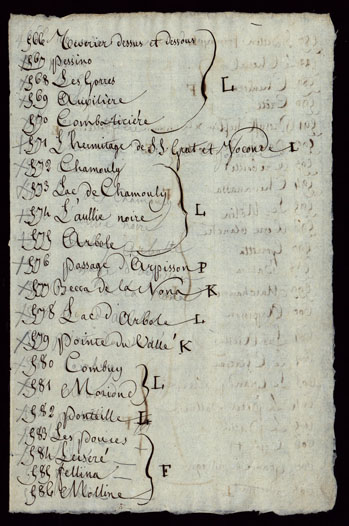 566 Teverier dessus et dessous
567 Pessino
568 Les Gorres L
569 Auxilière
570 Combaticière
571 L'hermitage de S.S. Grat et Joconde L
572 Chamouly
573 Lac de Chamouly
574 L'aullie noire L
575 Arbole
576 Passage d'Arpisson P
577 Becca de la Nona K
578 Lac d'Arbole L
579 Pointe du Vallé K
580 Combuy
581 Morione L
582 Ponteille L
583 Les Pouces
584 Leiséré F
585 Fellina
586 Molline